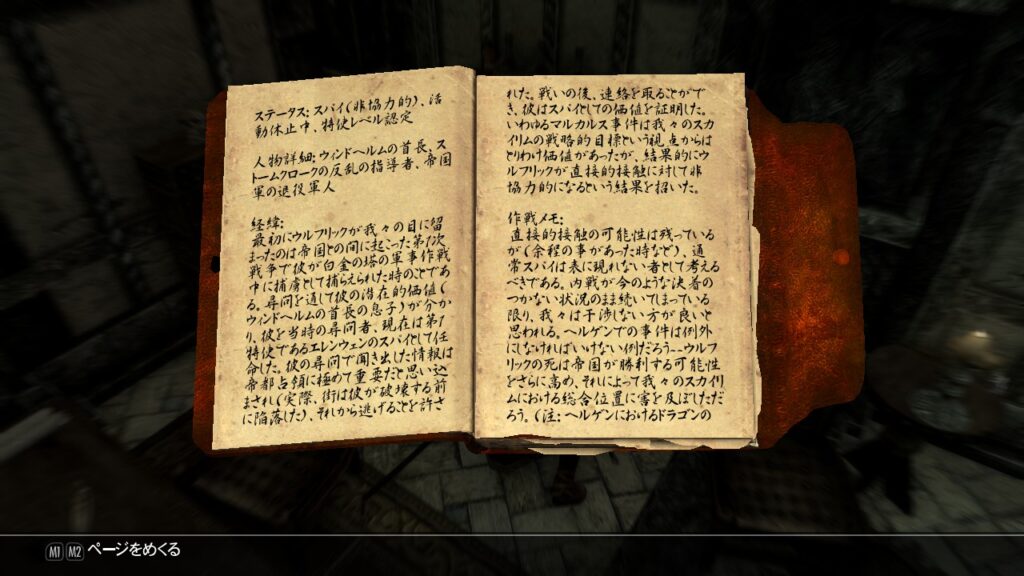 ステータス: スパイ(非協力的)、活
動休止中、特使レベル認定
人物詳細: ウィンドヘルムの首長、ス
トームクロークの反乱の指導者、帝国
軍の退役軍人
経緯:
最初にウルフリックが我々の目に留
まったのは帝国との間に起こった第1次
戦争で彼が白金の塔の軍事作戦
中に捕虜として捕らえられた時のことであ
る。尋問を通して彼の潜在的価値(
ウィンドヘルムの首長の息子)が分か
り、彼を当時の尋問者、現在は第1
特使であるエレンウェンのスパイとして任
命した。彼の尋問で聞き出した情報は
帝都占領に極めて重要だと思い込
まされ(実際、街は彼が破壊する前
に陥落した)、それから逃げることを許さ
れた。戦いの後、連絡を取ることがで
き、彼はスパイとしての価値を証明した。
いわゆるマルカルス事件は我々のスカ
イリムの戦略的目標という視点からは
とりわけ価値があったが、結果的にウ
ルフリックが直接的接触に対して非
協力的になるという結果を招いた。
作戦メモ:
直接的接触の可能性は残っている
が(余程の事があった時など)、通
常スパイは表に現れない者として考える
べきである。内戦が今のような決着の
つかない状況のまま続いてしまっている
限り、我々は干渉しない方が良いと
思われる。ヘルゲンでの事件は例外
にしなければいけない例だろう—ウルフ
リックの死は帝国が勝利する可能性
をさらに高め、それによって我々のスカイリ
ムにおける総合位置に害を及ぼしただ
ろう。(注: ヘルゲンにおけるドラゴンの
M1 M2 ページをめくる